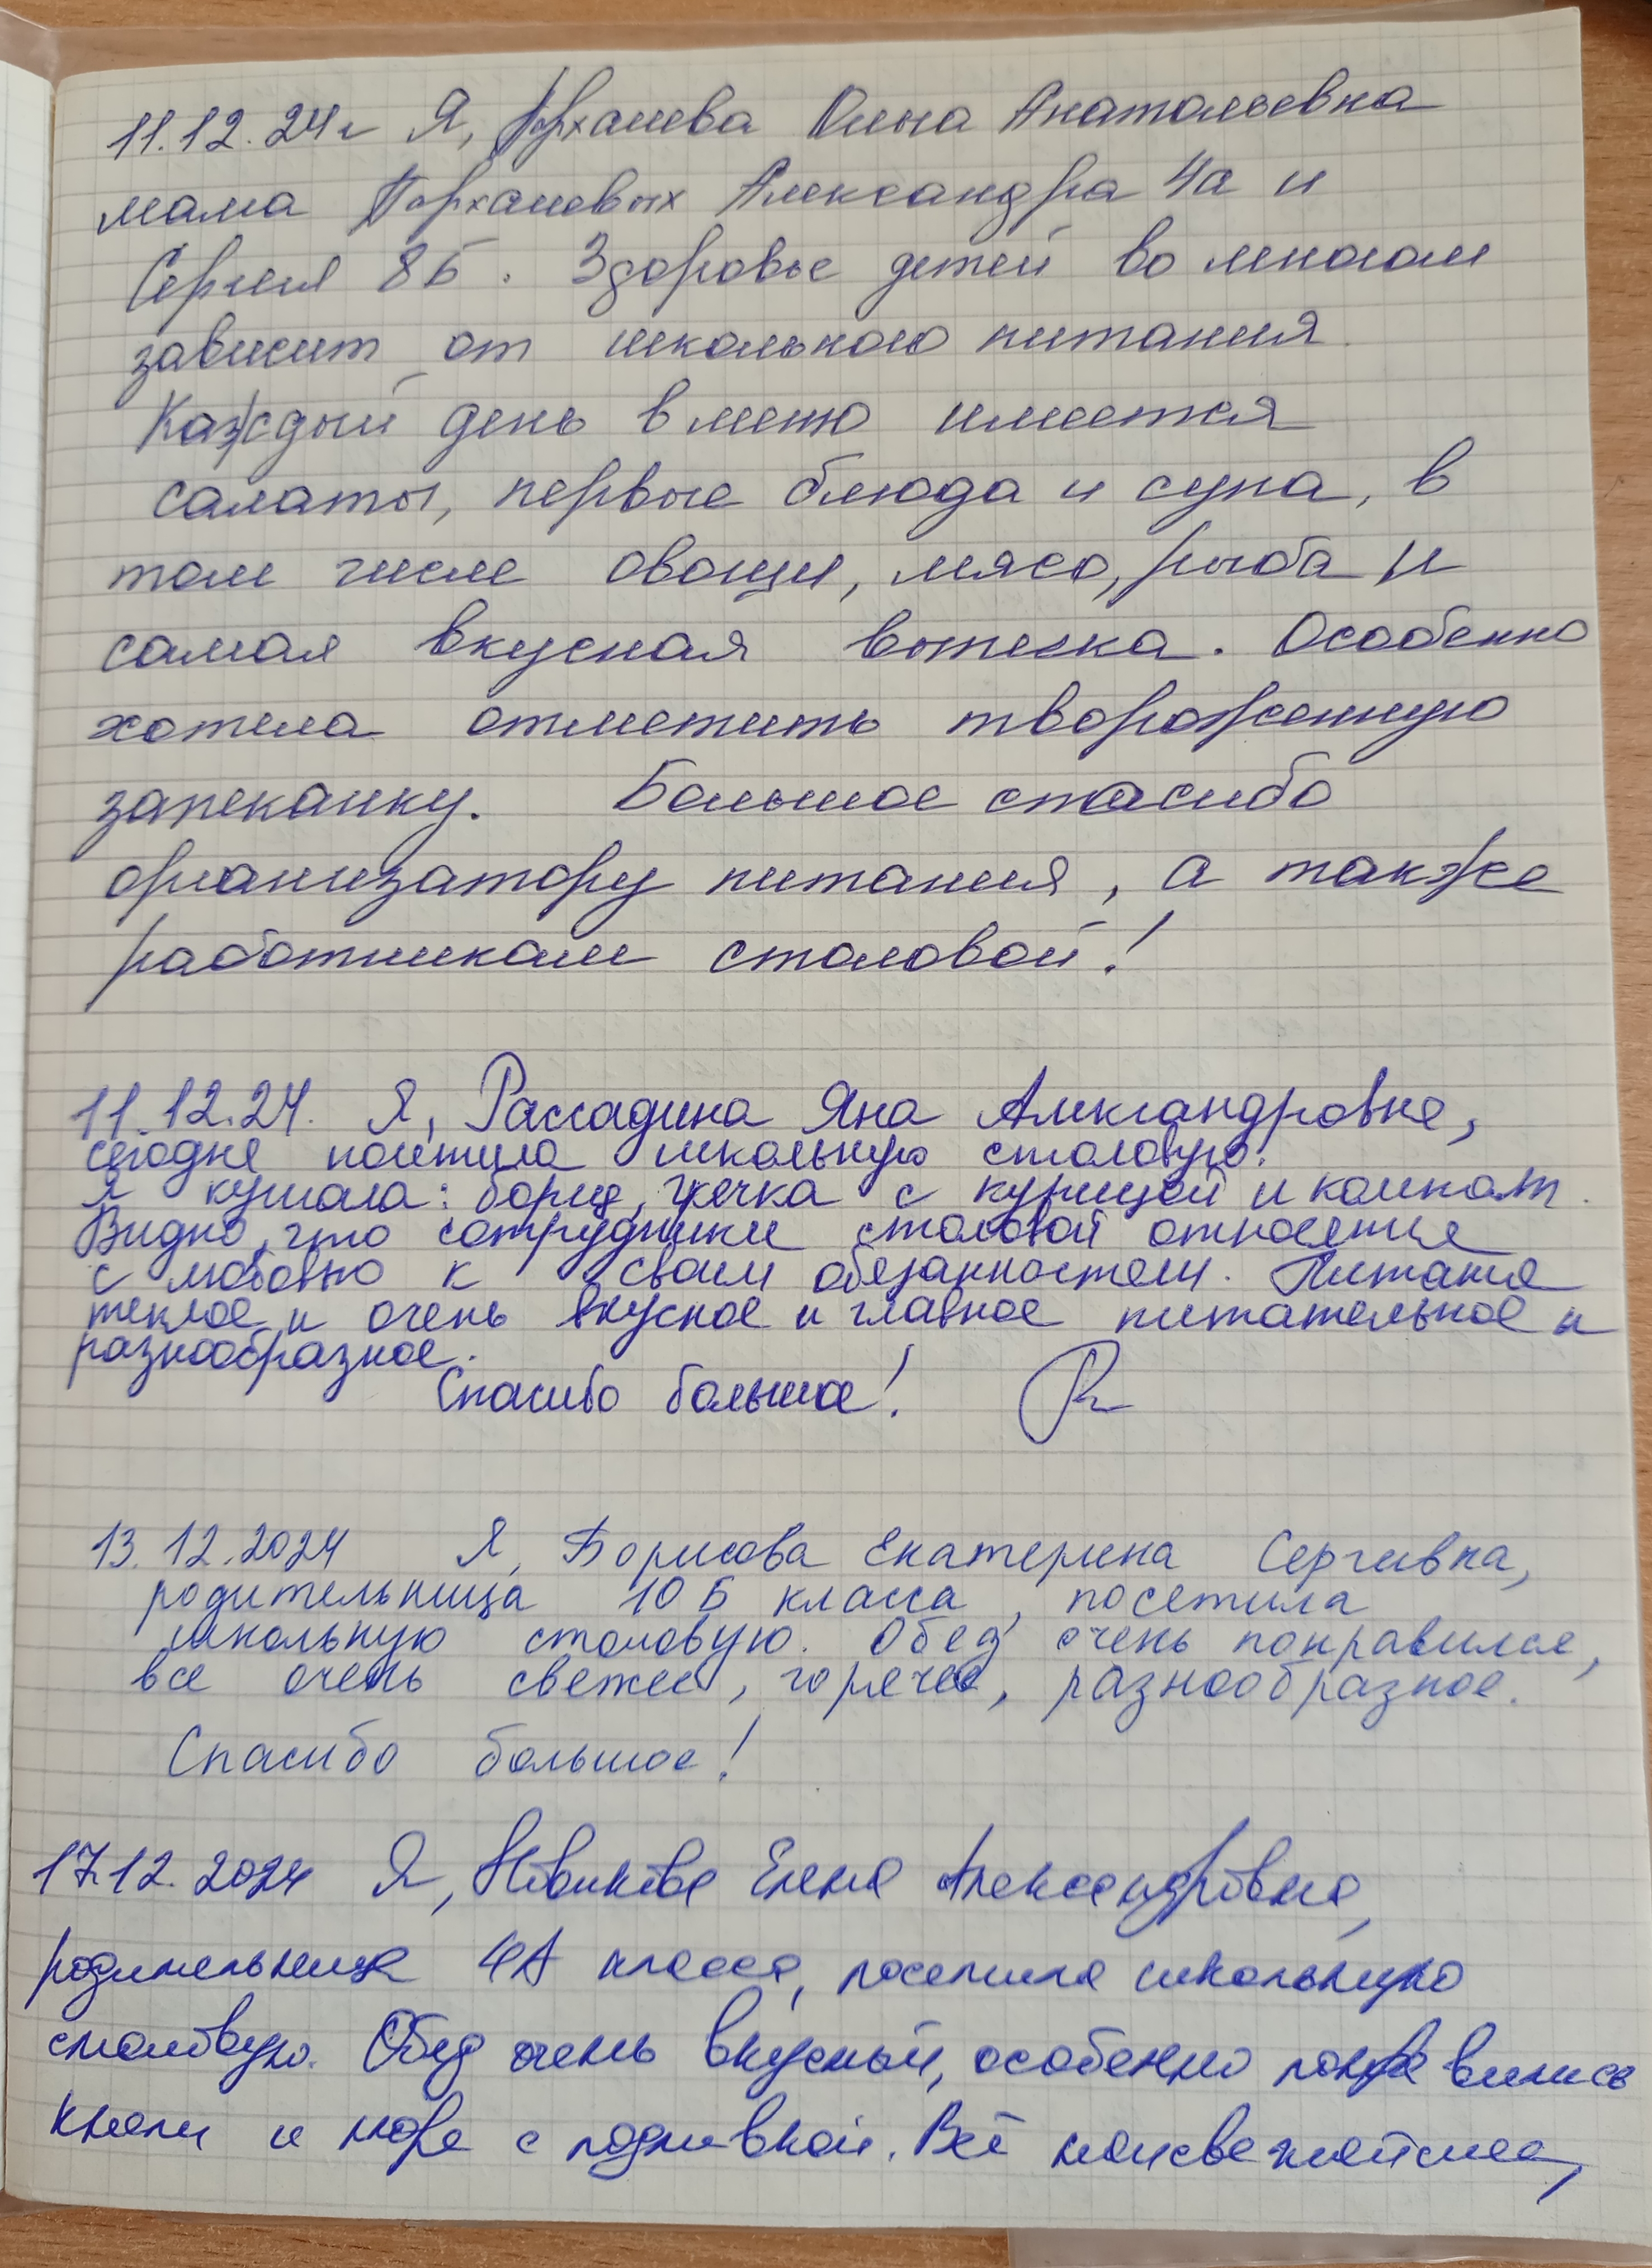 11.12.24г Я, Ольга Анатольевна
мама Александра 4а и
Сергея 8Б. Здоровье детей во многом
зависит от школьного питания.
Каждый день в меню имеется
салаты, первые блюда и супа, в
том числе овощи, мясо, рыба и
самая вкусная выпечка. Особенно
хотела отметить твороженную
запеканку. Большое спасибо
организатору питания, а также
работникам столовой!
11.12.24. Я, Рассадина Яна Александровна,
сегодня посетила школьную столовую.
Я кушала: борщ, гречка с курицей и компот.
Видно, что сотрудники столовой относятся
с любовью к своим обязанностям. Питание
теплое и очень вкусное и главное питательное и
разнообразное.
Спасибо большое!
13.12.2024 Я, Борисова Екатерина Сергеевна,
родительница 10 Б класса, посетила
школьную столовую. Обед очень понравился,
все очень свежее, горячее, разнообразное.
Спасибо большое!
17.12.2024 Я, Новикова Елена Александровна,
родительница 4А класса, посетила школьную
столовую. Обед очень вкусный, особенно понравились
кнели и пюре с подливкой. Всё наисвежайшее,